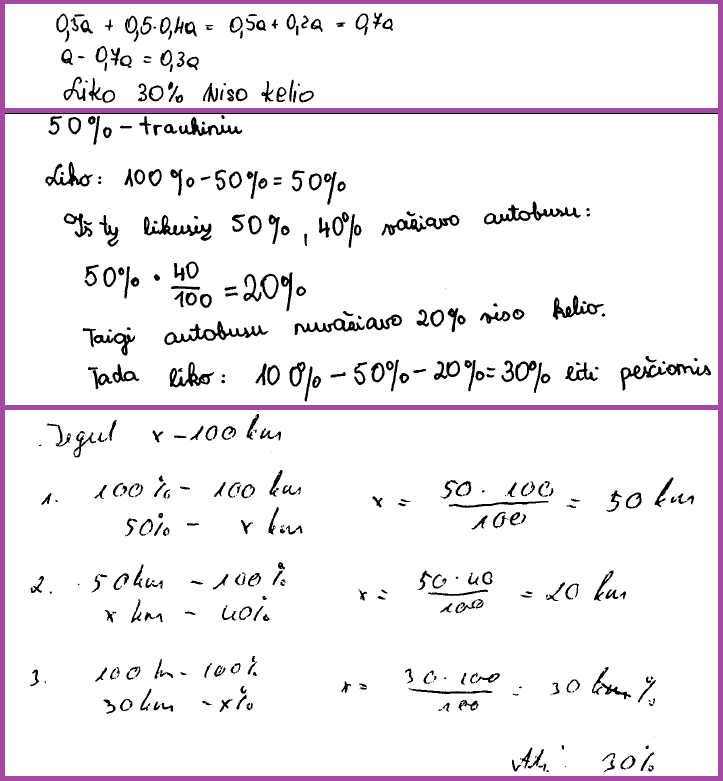 0,5a + 0,5·0,4a = 0,5a + 0,2a = 0,7a
a - 0,7a = 0,3a
Liko 30% viso kelio
50% - traukiniu
Liko: 100% - 50% = 50%
Iš tų likusių 50%, 40% važiavo autobusu:
50% · 40/100 = 20%
Taigi autobusu nuvažiavo 20% viso kelio.
Tada liko: 100% - 50% - 20% = 30% eiti pėsčiomis
Tegul x - 100 km
1. 100% - 100 km x = 50 · 100 / 100 = 50 km
50% - x km
2. 50 km - 100% x = 50 · 40 / 100 = 20 km
x km - 40%
3. 100 km - 100% x = 30 · 100 / 100 = 30 %
30 km - x%
Ats.: 30%